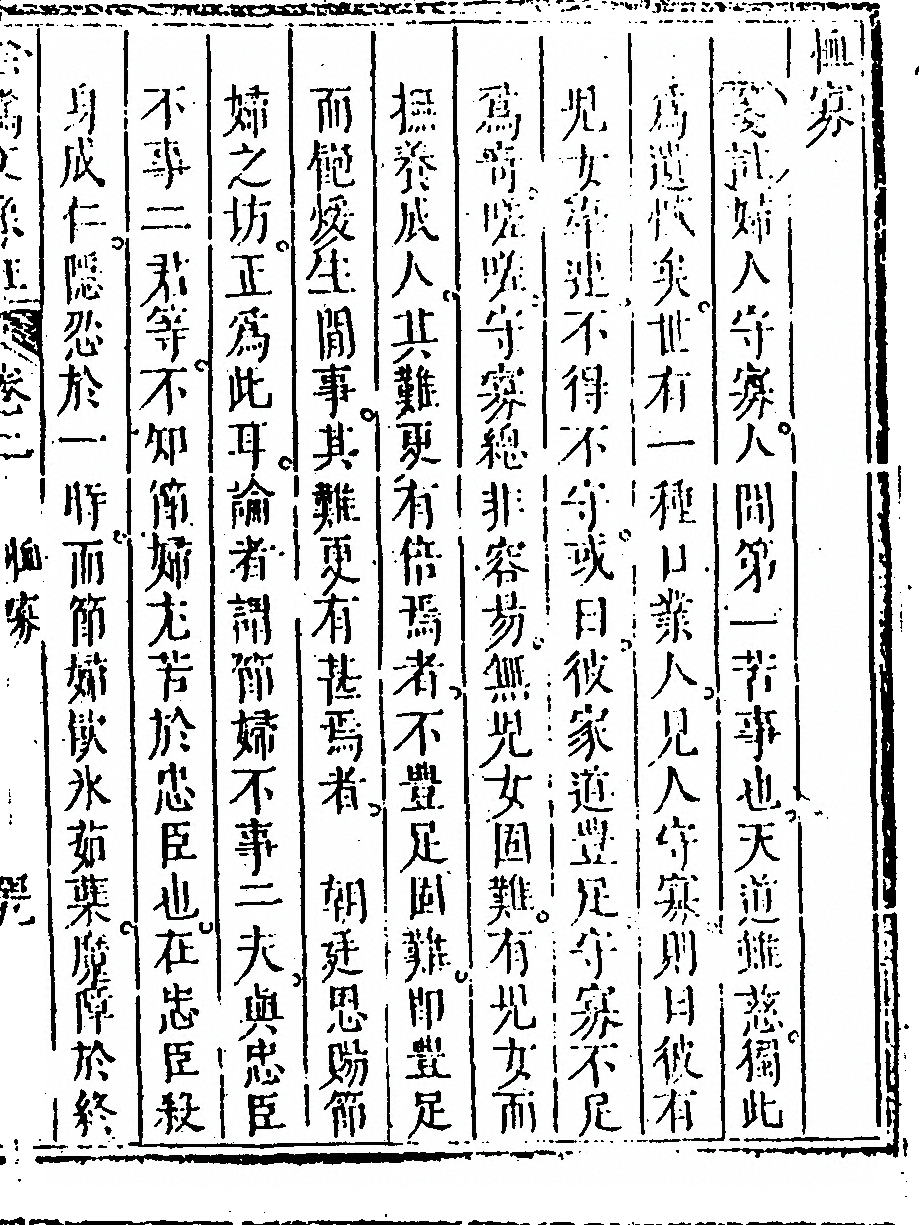 恤寡
嫠訕婦人守寡人間第一苦事也天道雖慈獨此
為遺恨矣世有一種口業人見人守寡則曰彼有
兒女牽連不得不守或曰彼家道豐足守寡不足
為奇嗟嗟守寡總非容易無兒女固難有兒女而
撫養成人其難更有倍焉者不豐足固難即豐足
而飽煖生閒事其難更有甚焉者　朝廷恩賜節
婦之坊正為此耳論者謂節婦不事二夫與忠臣
不事二君等不知節婦尤苦於忠臣也在忠臣殺
身成仁隱忍於一時而節婦飲氷茹蘗魔障於終
卷二　恤寡